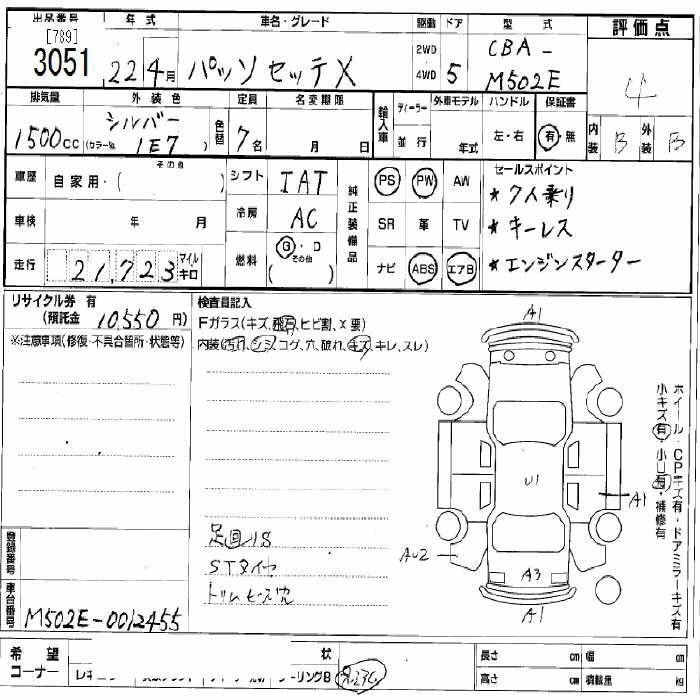 出品番号 年式 車名・グレード 駆動 ドア 型式 評価点
[789]
3051 22年4月 パッソセッテX 2WD 4WD 5 CBA-M502E 4
排気量 外装色 定員 名変期限 輸入車 ディーラー 外車モデル ハンドル 保証書 内装 外装
1500cc シルバー (カラーNo. 1E7) 色替 7名 月 日 並行 年式 左・右 有・無 B B
車歴 自家用・( その他 ) シフト IAT 純正装備品 PS PW AW セールスポイント
★7人乗り
車検 年 月 冷房 AC SR 革 TV ★キーレス
走行 21,723 マイル キロ 燃料 G・D (その他) ナビ ABS エアB ★エンジンスターター
リサイクル券 有
(預託金 10,550円)
※注意事項(修復・不具合箇所・状態等)
検査員記入
Fガラス(キズ、飛石、ヒビ割、X要)
内装(汚れ、シミ、コゲ、穴、破れ、キズ、キレ、スレ)
A1
U1
A1
AU2
A3
A1
ホイール・CPキズ有・ドアミラーキズ有
小キズ有・小凹有・補修有
足回りS
STタイヤ
トリムビス穴
登録番号
車台番号 M502E-0012455
希望コーナー 状 長さ cm 幅 cm
高さ cm 積載量 kg